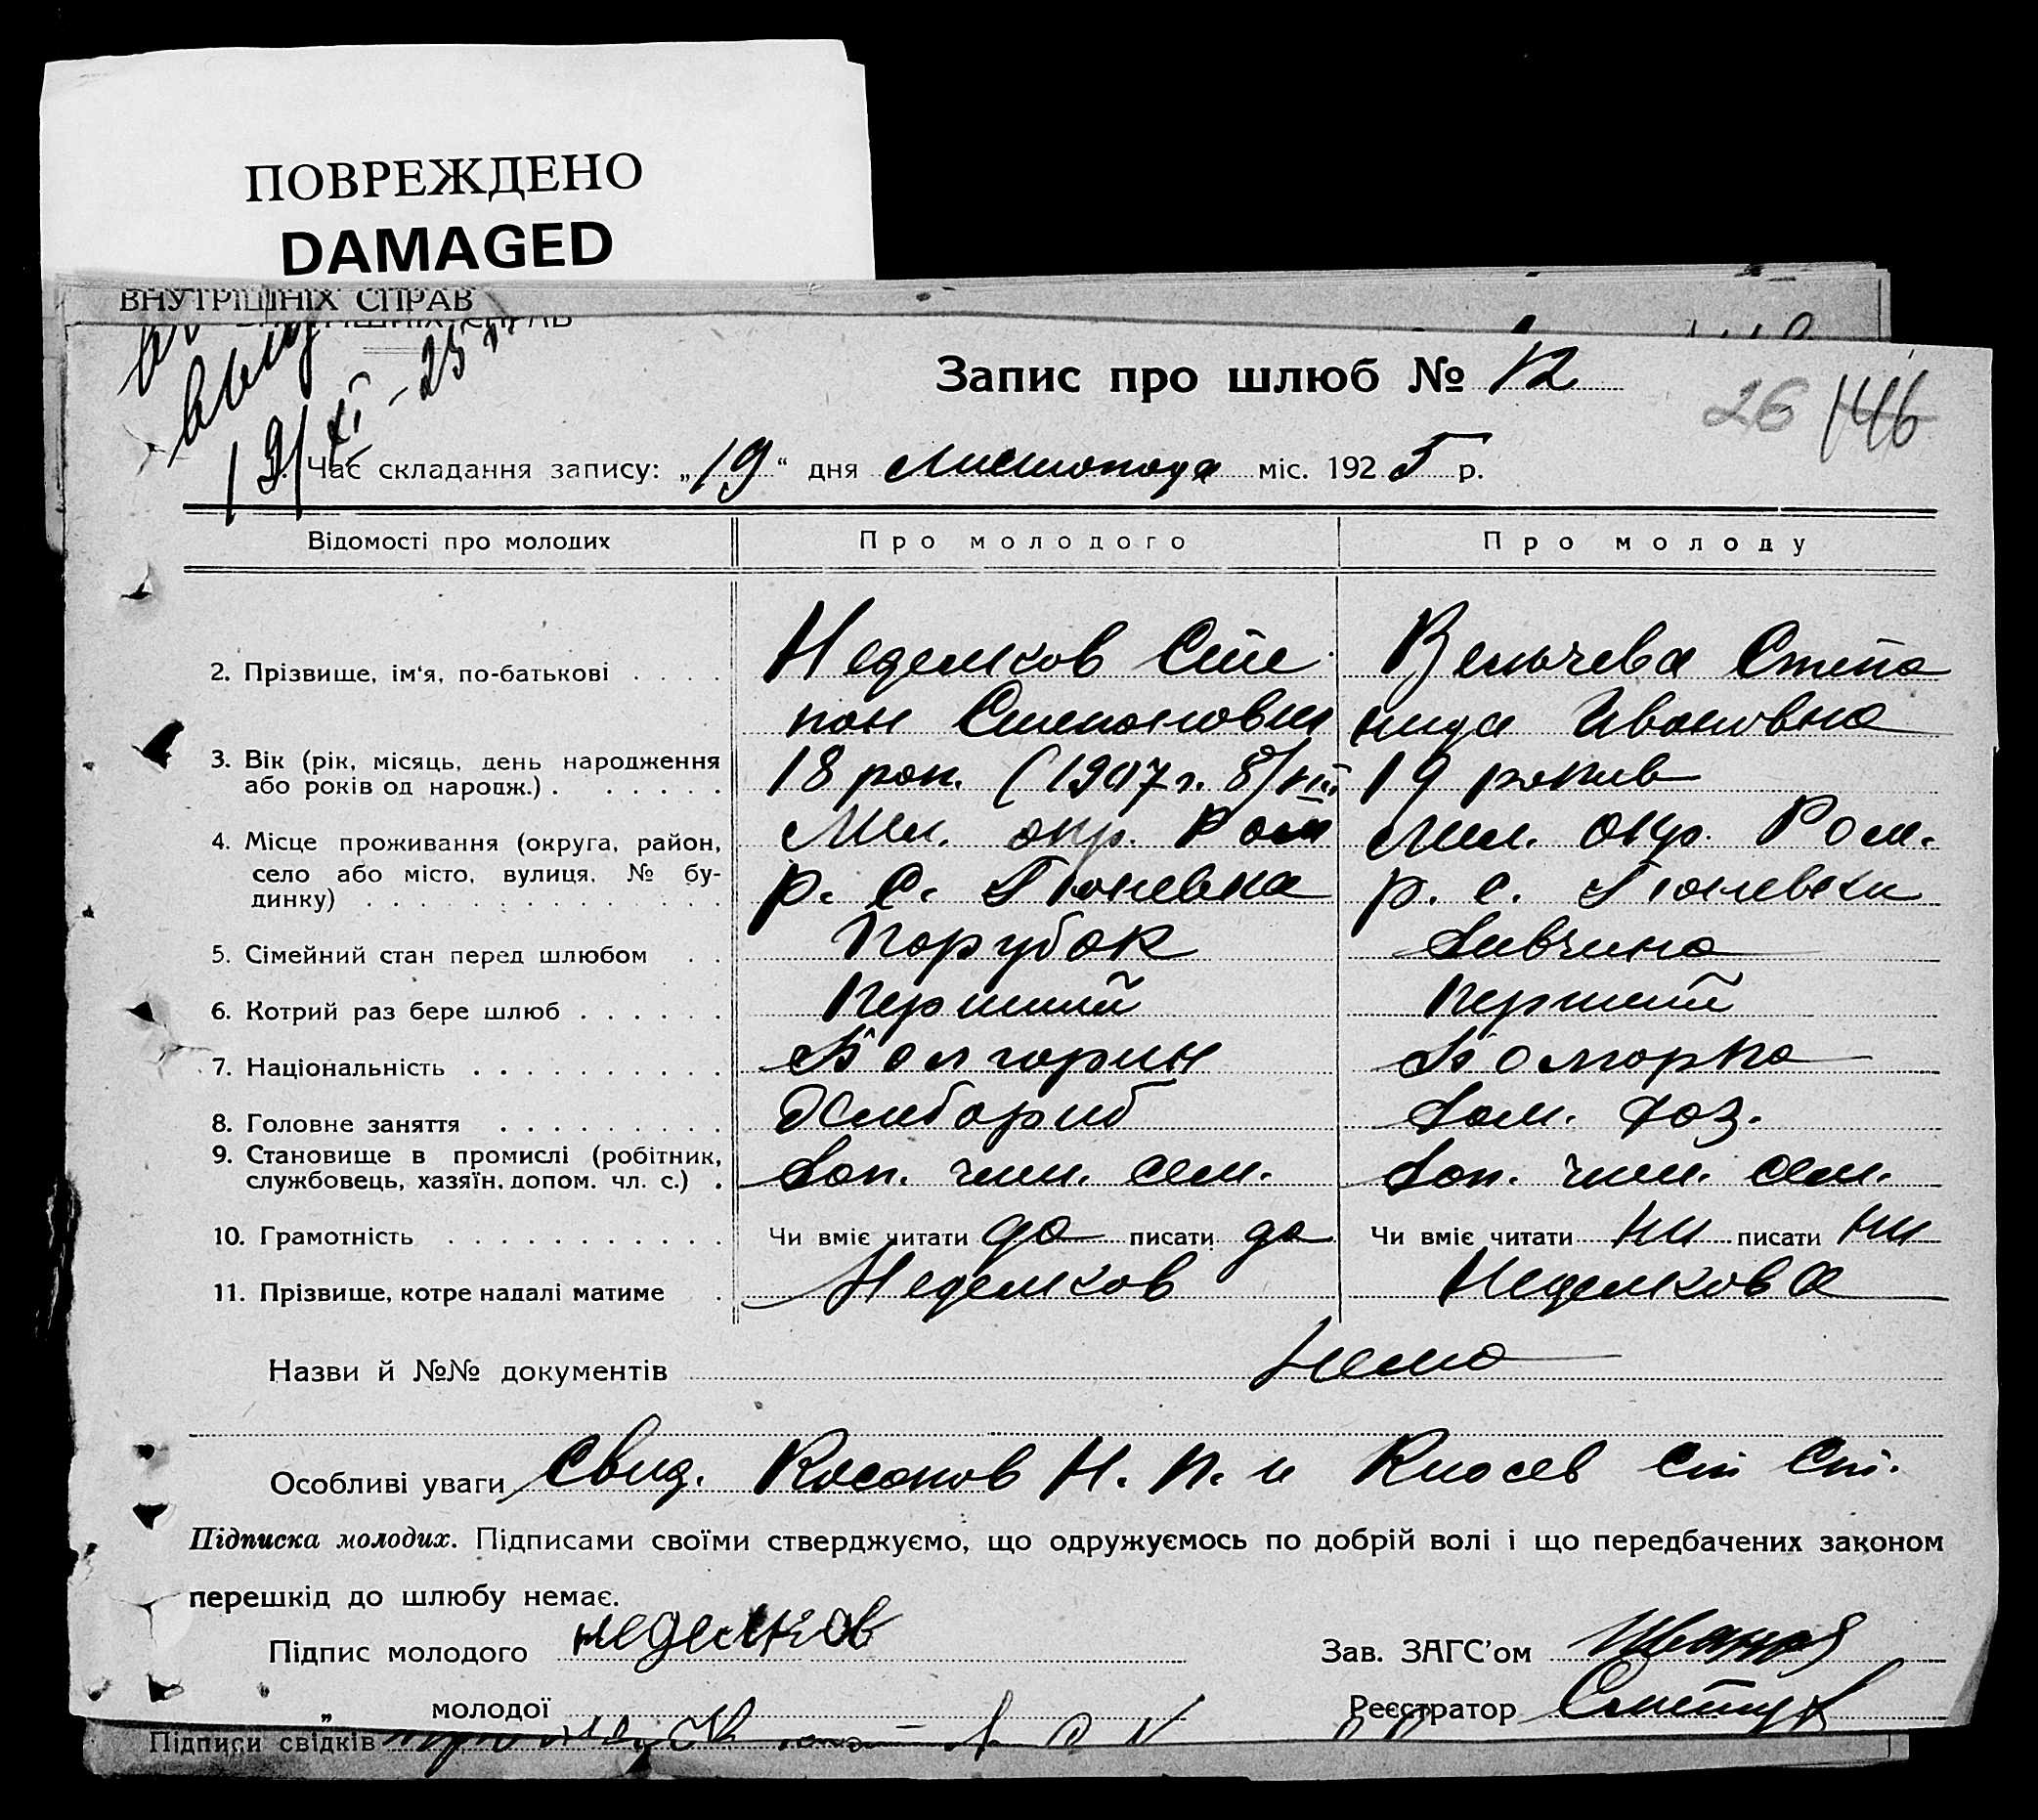 ПОВРЕЖДЕНО
DAMAGED
ВНУТРІШНІХ СПРАВ
19/XI-25
Запис про шлюб № 12
26 146
Час складання запису: „19“ дня Листопада міс. 1925 р.
Відомості про молодих Про молодого Про молоду
2. Прізвище, ім'я, по-батькові . . . . Неделков Сте Вельчева Степа
пан Степанович нида Ивановна
3. Вік (рік, місяць, день народження 18 рок. (1907 г. 8/ 19 рокив
або років од народж.) . . . . . .
4. Місце проживання (округа, район, Мел. окр. Ром Мел. окр. Ром.
село або місто, вулиця, № бу- р. С. Гюневка р. с. Гюневки
динку) . . . . . . . . . . . . . .
5. Сімейний стан перед шлюбом . . Парубок Дивчина
6. Котрий раз бере шлюб . . . . . . Перший Перший
7. Національність . . . . . . . . . . Болгарин Болгарка
8. Головне заняття . . . . . . . . . Хлибориб Дом. хоз.
9. Становище в промислі (робітник, Доп. член. сем. Доп. член. сем.
службовець, хазяїн, допом. чл. с.) .
10. Грамотність . . . . . . . . . . . Чи вміє читати да писати да Чи вміє читати ни писати ни
11. Прізвище, котре надалі матиме . Неделков Неделкова
Назви й №№ документів Нема
Особливі уваги Свид. Касапов Н. П. и Киосев Ст Ст.
Підписка молодих. Підписами своїми стверджуємо, що одружуємось по добрій волі і що передбачених законом
перешкід до шлюбу немає.
Підпис молодого неделков Зав. ЗАГС'ом
„ молодої Реєстратор
Підписи свідків